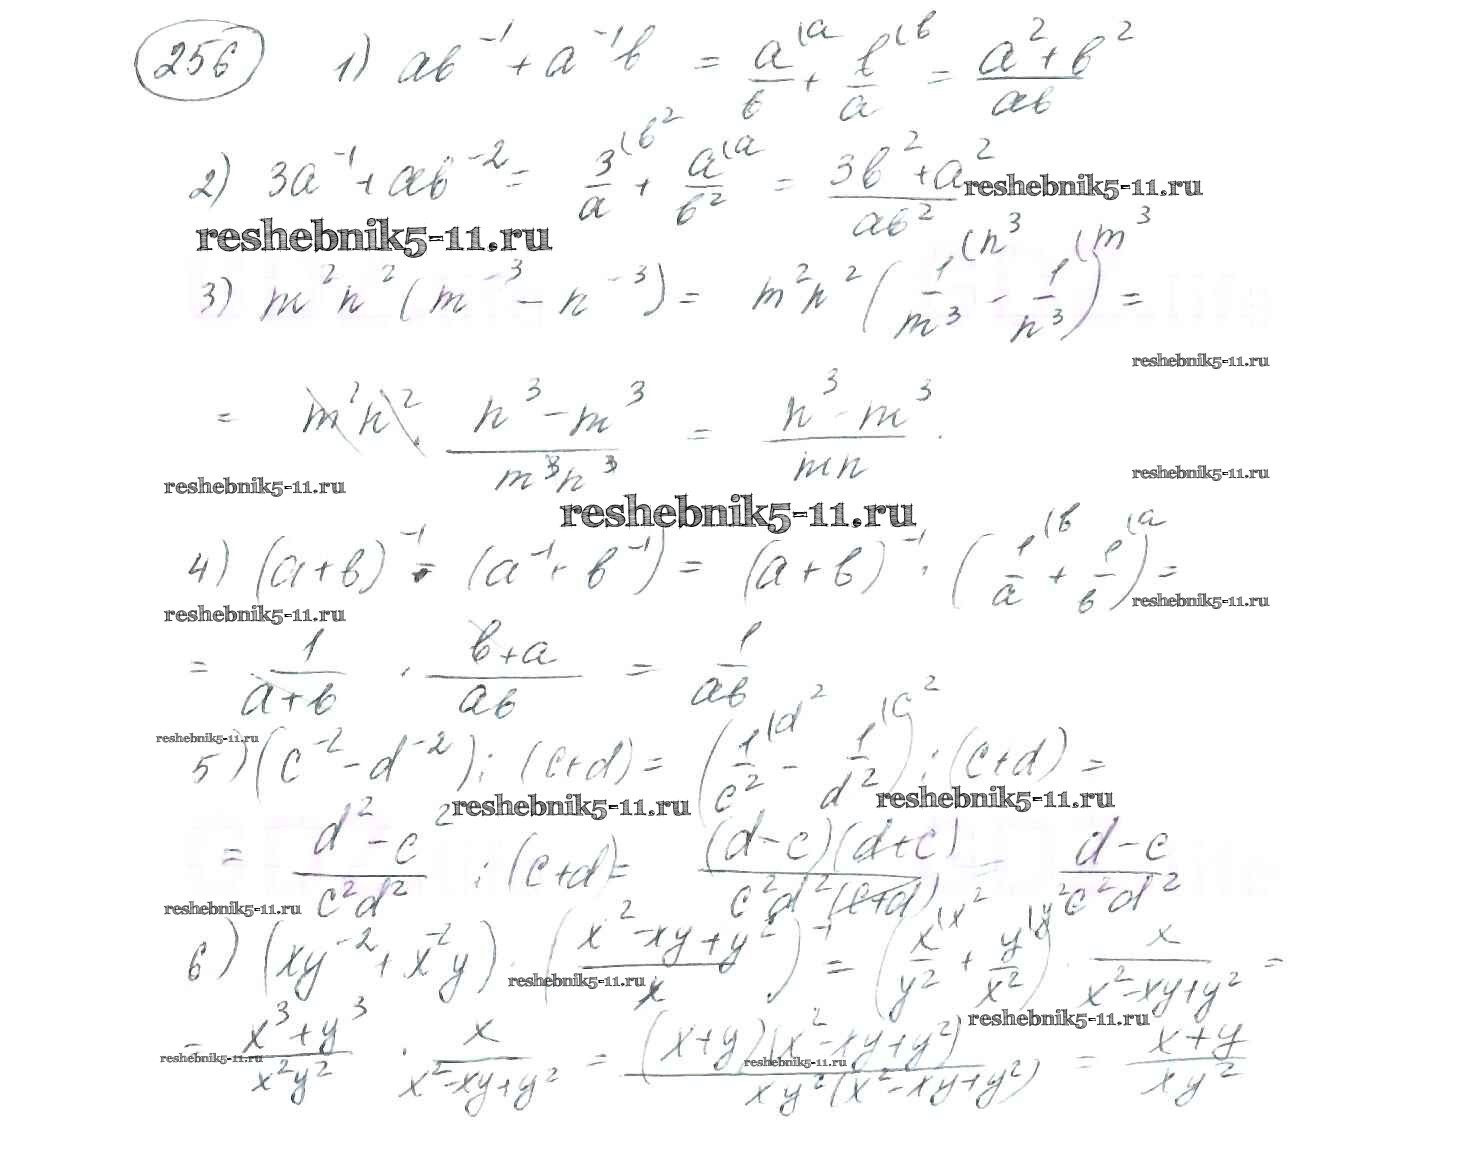 256 1) ab⁻¹ + a⁻¹b = a/b (a + b/a (b = (a² + b²)/(ab)
2) 3a⁻¹ + ab⁻² = 3/a (b² + a/b² (a = (3b² + a²)/(ab²)
reshebnik5-11.ru
reshebnik5-11.ru
3) m²n²(m⁻³ - n⁻³) = m²n²(1/m³ (n³ - 1/n³ (m³) =
reshebnik5-11.ru
= m²n² · (n³ - m³)/(m³n³) = (n³ - m³)/(mn).
reshebnik5-11.ru
reshebnik5-11.ru
reshebnik5-11.ru
4) (a+b)⁻¹ · (a⁻¹ + b⁻¹) = (a+b)⁻¹ · (1/a (b + 1/b (a) =
reshebnik5-11.ru
reshebnik5-11.ru
= 1/(a+b) · (b+a)/(ab) = 1/(ab)
reshebnik5-11.ru
5) (c⁻² - d⁻²) : (c+d) = (1/c² (d² - 1/d² (c²) : (c+d) =
reshebnik5-11.ru
reshebnik5-11.ru
= (d² - c²)/(c²d²) : (c+d) = (d-c)(d+c)/(c²d²(c+d)) = (d-c)/(c²d²)
reshebnik5-11.ru
6) (xy⁻² + x⁻²y) · ((x² - xy + y²)/x)⁻¹ = (x/y² (x² + y/x² (y²) · x/(x² - xy + y²) =
reshebnik5-11.ru
reshebnik5-11.ru
= (x³ + y³)/(x²y²) · x/(x² - xy + y²) = (x+y)(x² - xy + y²)/(xy²(x² - xy + y²)) = (x+y)/(xy²)
reshebnik5-11.ru
reshebnik5-11.ru